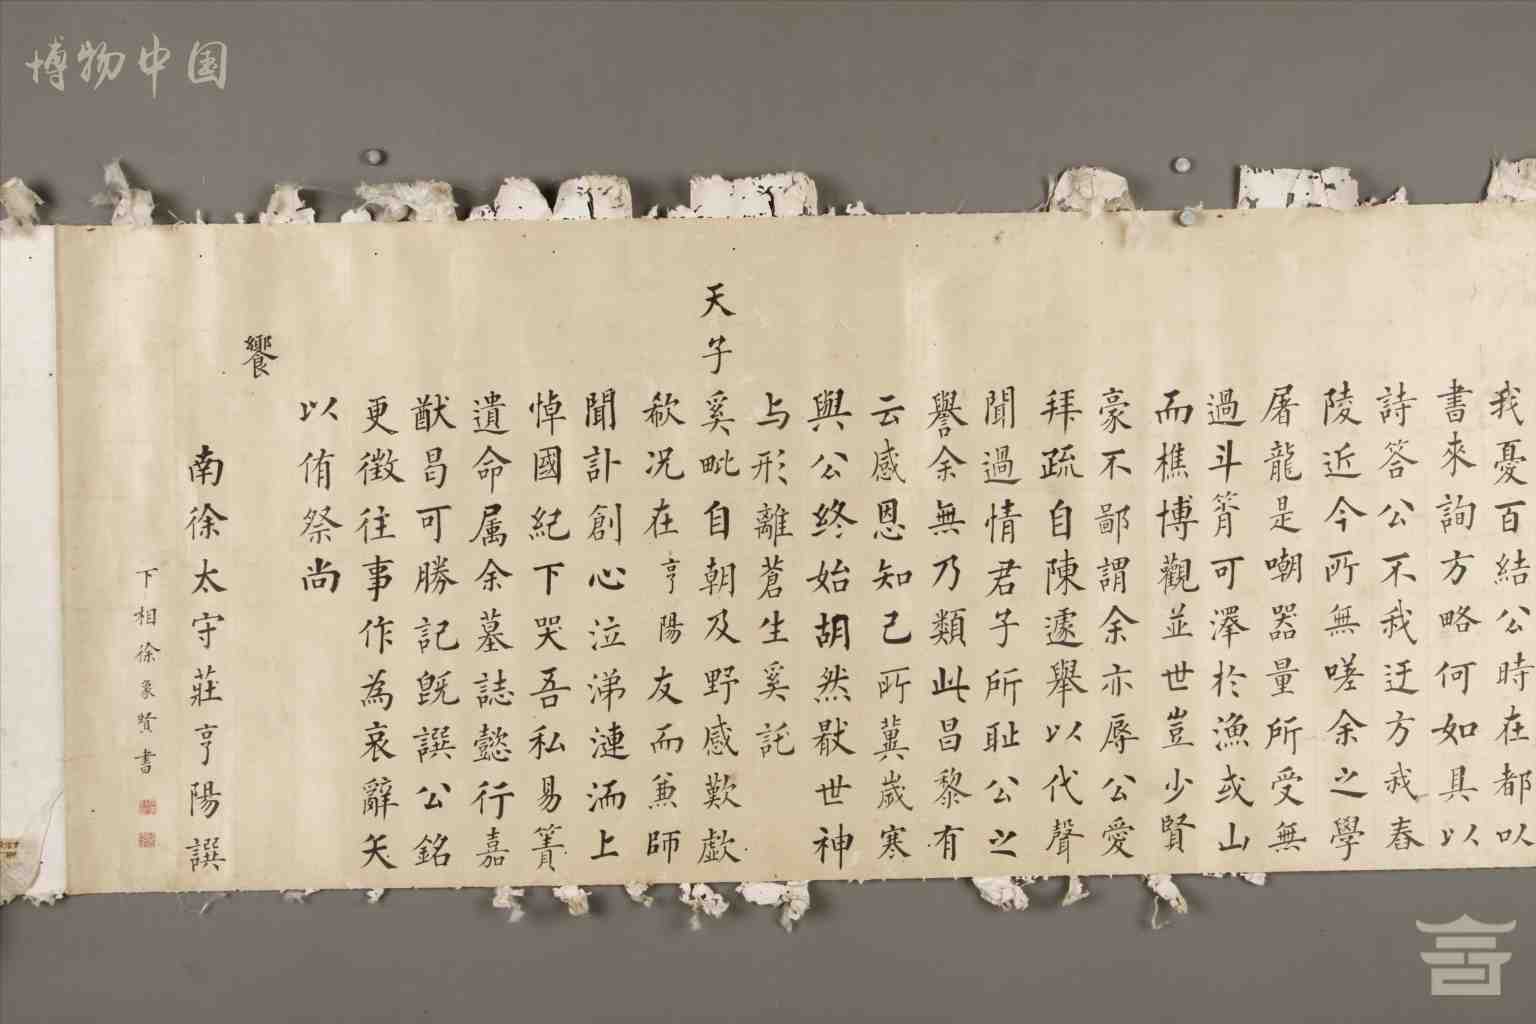 博物中国
我憂百結公時在都以
書來詢方略何如具以
詩答公不我迂方我春
陵近今所無嗟余之學
屠龍是嘲器量所受無
過斗筲可澤於漁或山
而樵博觀並世豈少賢
豪不鄙謂余亦辱公愛
拜疏自陳遽舉以代聲
聞過情君子所耻公之
譽余無乃類此昌黎有
云感恩知己所冀歲寒
與公終始胡然猒世神
与形離蒼生奚託
天子奚毗自朝及野感歎歔
欷况在亨陽友而兼師
聞訃創心泣涕漣洏上
悼國紀下哭吾私易簀
遺命属余墓誌懿行嘉
猷曷可勝記既譔公銘
更徵往事作為哀辭矢
以侑祭尚
饗
南徐太守莊亨陽譔
下相徐象贤書